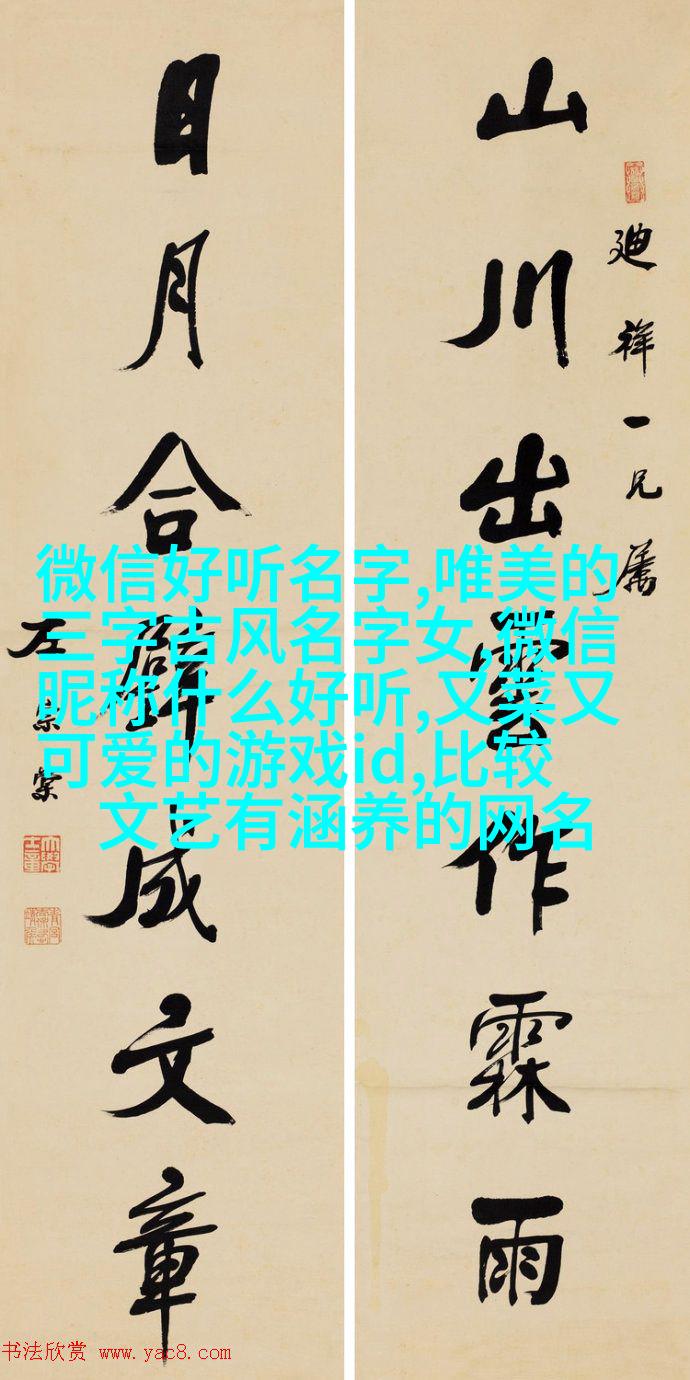 山川出雲作霖雨
廸祥一兄属
日月合璧成文章
左宗棠
微信好听名字,唯美的
三字古风名字女,微信
昵称什么好听,又菜又
可爱的游戏id,比较
文艺有涵养的网名
书法欣赏 www.yac8.com